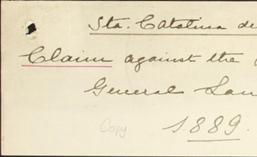 Sta. Catalina de
Claim against the
General
Copy
1889.